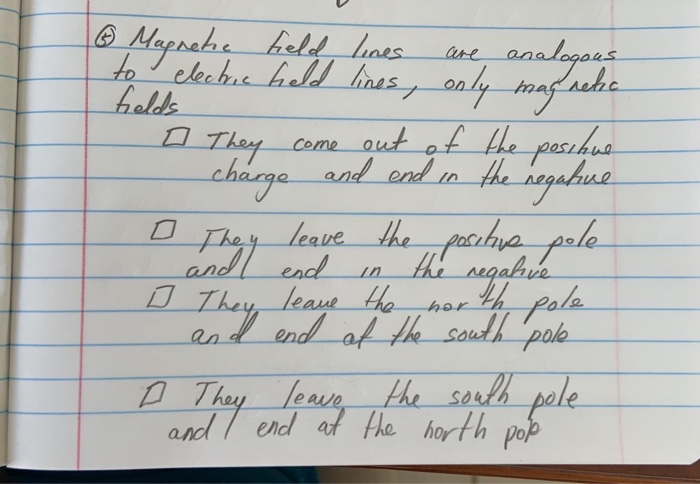 ⑤ Magnetic field lines are analogous
to electric field lines, only magnetic
fields
☐ They come out of the positive
charge and end in the negative
☐ They leave the positive pole
and end in the negative
☐ They leave the north pole
and end at the south pole
☐ They leave the south pole
and end at the north pole